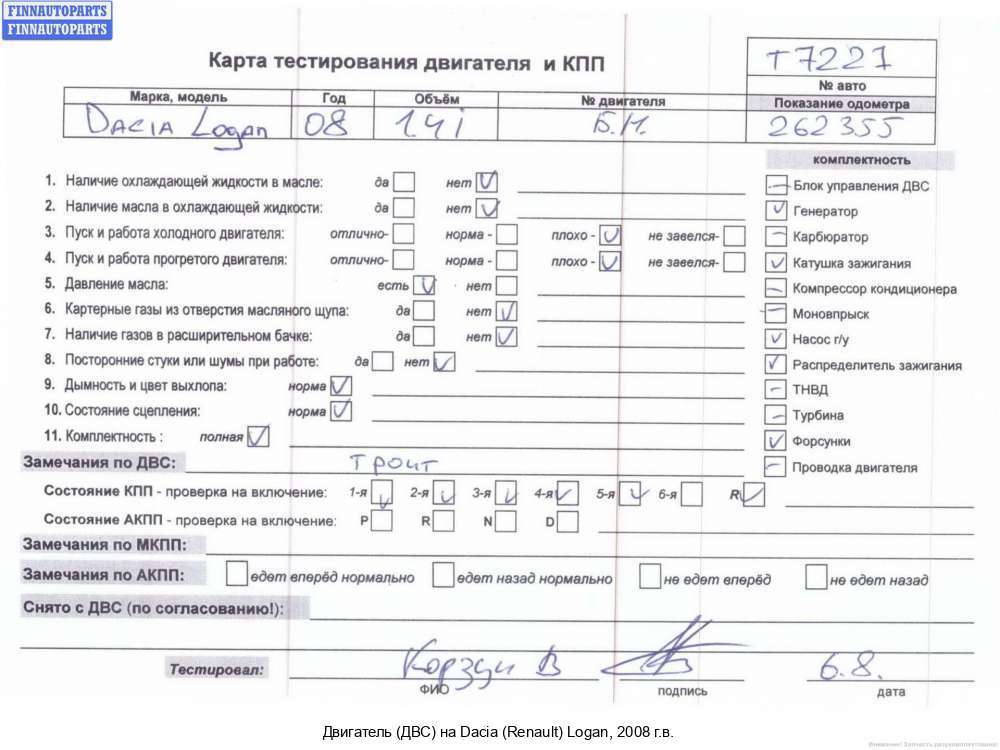 FINNAUTOPARTS
FINNAUTOPARTS
Карта тестирования двигателя и КПП
T7227
№ авто
Марка, модель Год Объём № двигателя Показание одометра
Dacia Logan 08 1.4i Б.Н. 262355
комплектность
1. Наличие охлаждающей жидкости в масле: да нет
2. Наличие масла в охлаждающей жидкости: да нет
3. Пуск и работа холодного двигателя: отлично- норма - плохо - не завелся-
4. Пуск и работа прогретого двигателя: отлично- норма - плохо - не завелся-
5. Давление масла: есть нет
6. Картерные газы из отверстия масляного щупа: да нет
7. Наличие газов в расширительном бачке: да нет
8. Посторонние стуки или шумы при работе: да нет
9. Дымность и цвет выхлопа: норма
10. Состояние сцепления: норма
11. Комплектность : полная
Блок управления ДВС
Генератор
Карбюратор
Катушка зажигания
Компрессор кондиционера
Моновпрыск
Насос г/у
Распределитель зажигания
ТНВД
Турбина
Форсунки
Проводка двигателя
Замечания по ДВС: троит
Состояние КПП - проверка на включение: 1-я 2-я 3-я 4-я 5-я 6-я R
Состояние АКПП - проверка на включение: P R N D
Замечания по МКПП:
Замечания по АКПП: едет вперёд нормально едет назад нормально не едет вперёд не едет назад
Снято с ДВС (по согласованию!):
Тестировал: Корзун В 6.8.
ФИО подпись дата
Двигатель (ДВС) на Dacia (Renault) Logan, 2008 г.в.